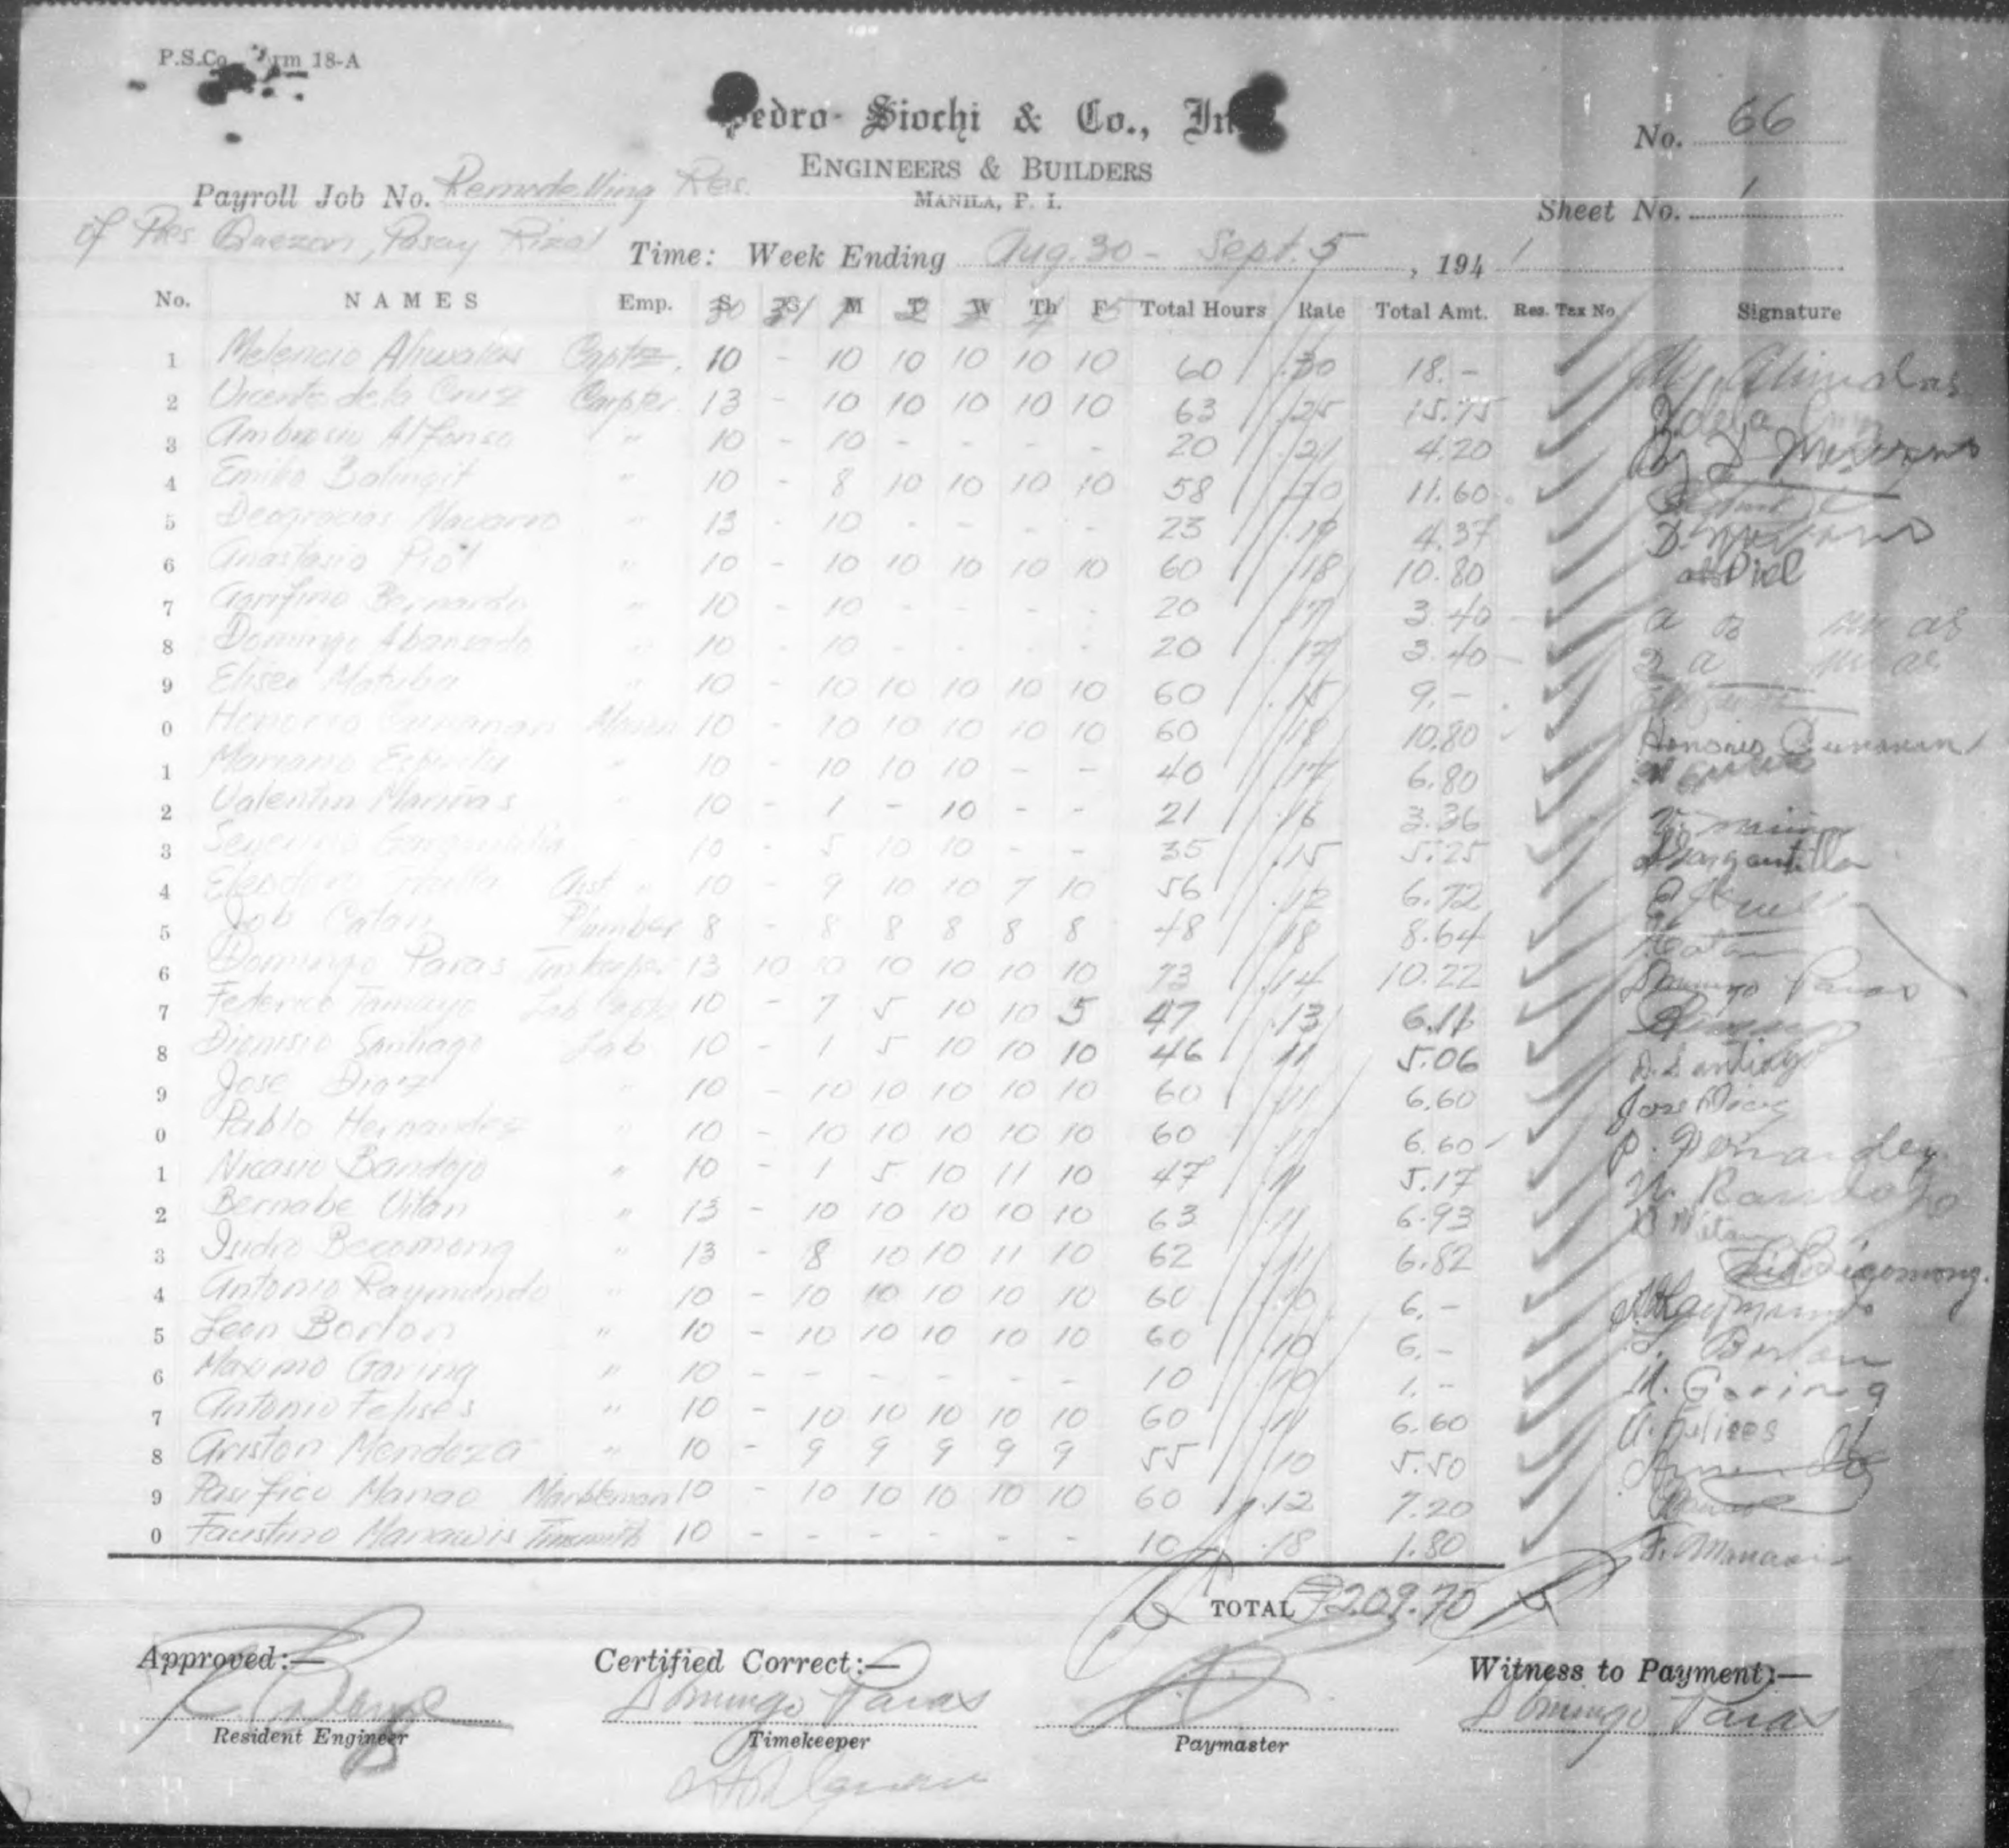 P.S.Co. Form 18-A
Pedro Siochi & Co., Inc.
No. 66
ENGINEERS & BUILDERS
Payroll Job No. Remodelling Res.
MANILA, P. I.
Sheet No. 1
of Pres Quezon, Pasay Rizal
Time: Week Ending Aug. 30 - Sept. 5, 1941
No. NAMES Emp. S 30 S 31 M 1 T 2 W 3 Th 4 F 5 Total Hours Rate Total Amt. Res. Tax No. Signature
1 Melencio Aliwalas Captz. 10 - 10 10 10 10 10 60 .30 18.-
2 Vicente de la Cruz Carpter 13 - 10 10 10 10 10 63 .25 15.75
3 Ambrosio Alfonso " 10 - 10 - - - - 20 .21 4.20
4 Emilio Balingit " 10 - 8 10 10 10 10 58 .20 11.60
5 Deogracias Navarro " 13 - 10 - - - - 23 .19 4.37
6 Anastacio Piol " 10 - 10 10 10 10 10 60 .18 10.80
7 Agrifino Bernardo " 10 - 10 - - - - 20 .17 3.40
8 Domingo Abansado " 10 - 10 - - - - 20 .17 3.40
9 Eliseo Matuba " 10 - 10 10 10 10 10 60 .15 9.-
0 Honorio Cunanan Mason 10 - 10 10 10 10 10 60 .18 10.80 Honorio Cunanan
1 Mariano Espiritu " 10 - 10 10 10 - - 40 .17 6.80
2 Valentin Mariñas " 10 - 1 - 10 - - 21 .16 3.36
3 Severino Gargantilla " 10 - 5 10 10 - - 35 .15 5.25 S Gargantilla
4 Asst " 10 - 9 10 10 7 10 56 .12 6.72
5 Job Catan Plumber 8 - 8 8 8 8 8 48 .18 8.64
6 Domingo Paras Timkeeper 13 10 10 10 10 10 10 73 .14 10.22 Domingo Paras
7 Federico Tamayo Lab Captz 10 - 7 5 10 10 5 47 .13 6.11
8 Dionisio Santiago Lab 10 - 1 5 10 10 10 46 .11 5.06 D. Santiago
9 Jose Diaz " 10 - 10 10 10 10 10 60 .11 6.60 Jose Diaz
0 Pablo Hernandez " 10 - 10 10 10 10 10 60 .11 6.60 P. Hernandez
1 Nicasio Bandojo " 10 - 1 5 10 11 10 47 .11 5.17 N. Bandojo
2 Bernabe Vitan " 13 - 10 10 10 10 10 63 .11 6.93 B Vitan
3 Isidro Becomong " 13 - 8 10 10 11 10 62 .11 6.82
4 Antonio Raymundo " 10 - 10 10 10 10 10 60 .10 6.- A. Raymundo
5 Leon Borlon " 10 - 10 10 10 10 10 60 .10 6.- L. Borlon
6 Maximo Goring " 10 - - - - - - 10 .10 1.- M. Goring
7 Antonio Felises " 10 - 10 10 10 10 10 60 .11 6.60 A. Felises
8 Ariston Mendoza " 10 - 9 9 9 9 9 55 .10 5.50
9 Pasifico Manao Marbleman 10 - 10 10 10 10 10 60 .12 7.20
0 Faustino Manawis Tinsmith 10 - - - - - - 10 .18 1.80 F. Manawis
TOTAL ₱209.70
Approved:— Certified Correct:— Witness to Payment:—
Domingo Paras Domingo Paras
Resident Engineer Timekeeper Paymaster